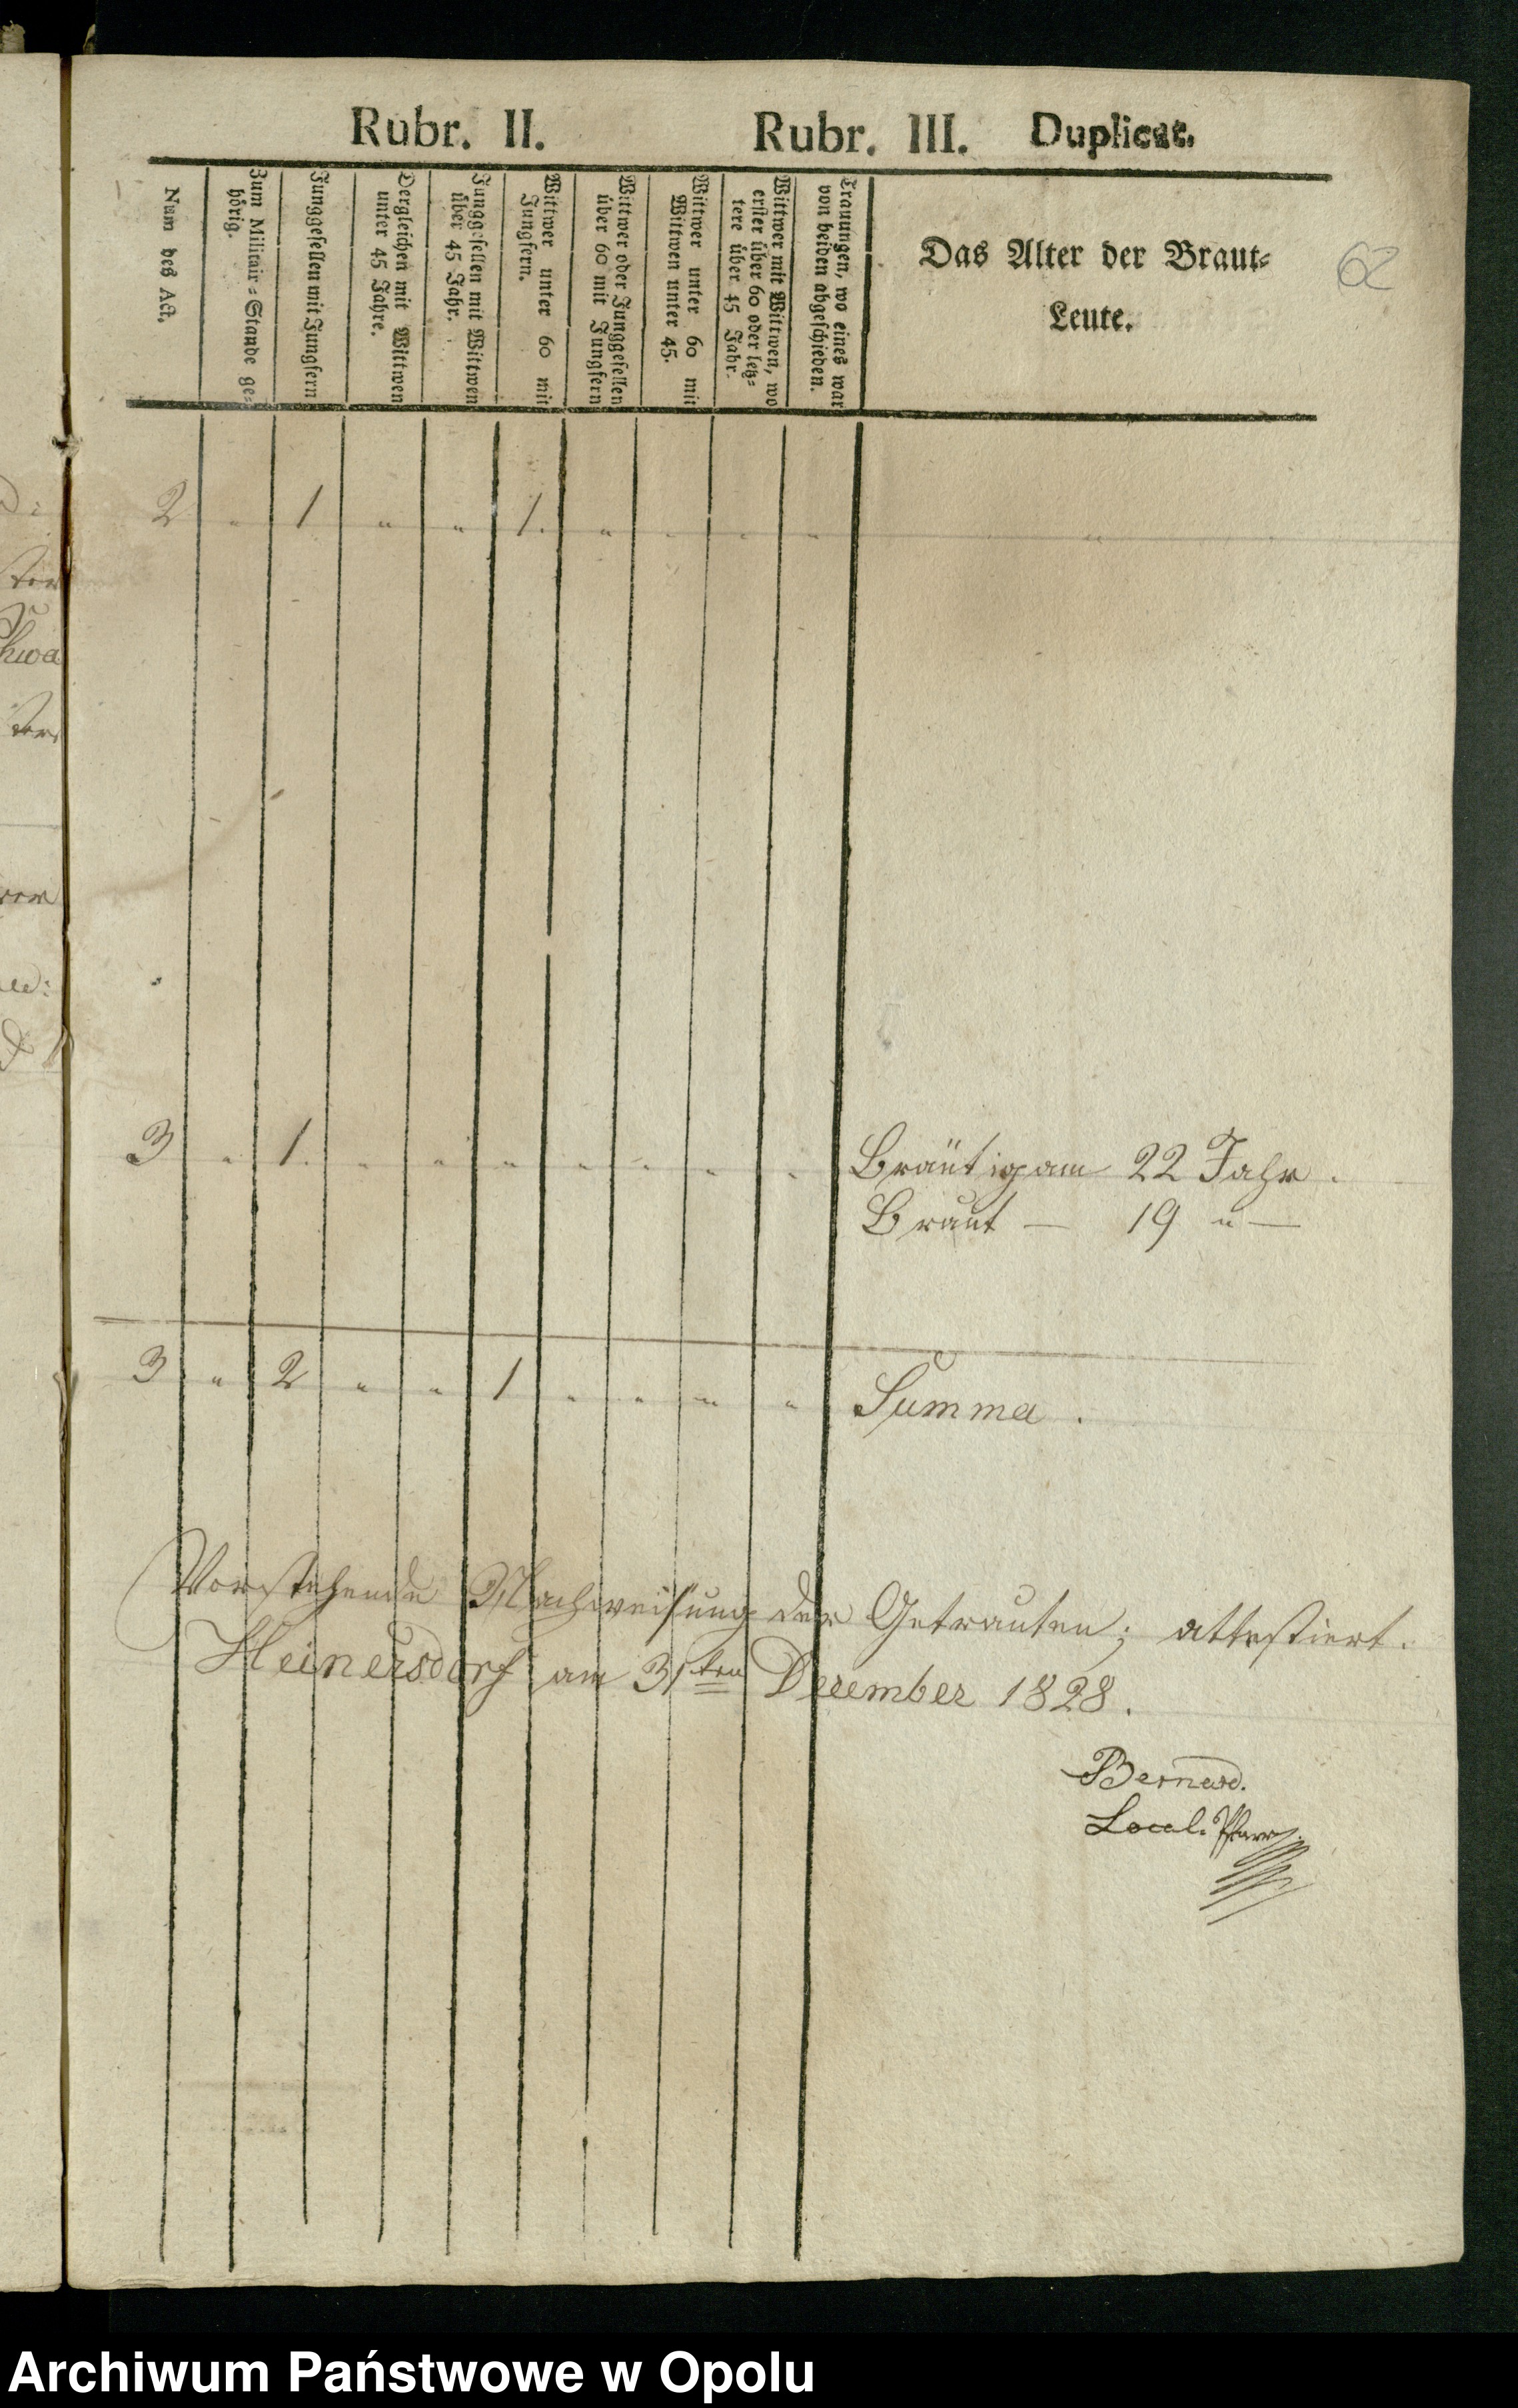 Rubr. II. Rubr. III. Duplicat.
Num des Act.
Zum Militair-Stande ge-
hörig.
Junggesellen mit Jungfern
Dergleichen mit Wittwen
unter 45 Jahre.
Junggesellen mit Wittwen
über 45 Jahr.
Wittwer unter 60 mit
Jungfern.
Wittwer oder Junggesellen
über 60 mit Jungfern
Wittwer unter 60 mit
Wittwen unter 45.
Wittwer mit Wittwen, wo
erster über 60 oder letz-
tere über 45 Jahr.
Trauungen, wo eines war
von beiden abgeschieden.
Das Alter der Braut-
Leute.
62
2 " 1 " " 1. " " " " "
3 " 1. " " " " " " " Bräutigam 22 Jahr.
Braut — 19 " —
3 " 2 " " 1 " " " " Summa.
Vorstehende Nachweisung der Getrauten; attestiert.
Heinersdorf am 31ten December 1828.
Bernard.
Local. Pfarr
Archiwum Państwowe w Opolu